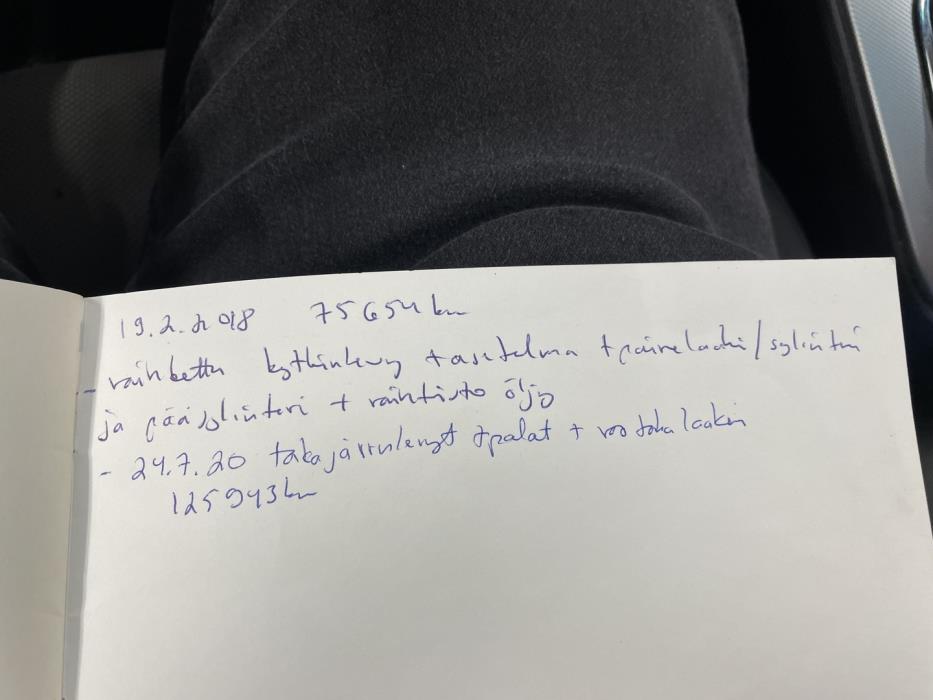 19.2.2018 75654 km
- vaihdettu kytkinlevy + asetelma + painelaakeri/sylinteri
ja pääsylinteri + vaihteisto öljy
- 24.7.20 takajarrulevyt + palat +
125943 km